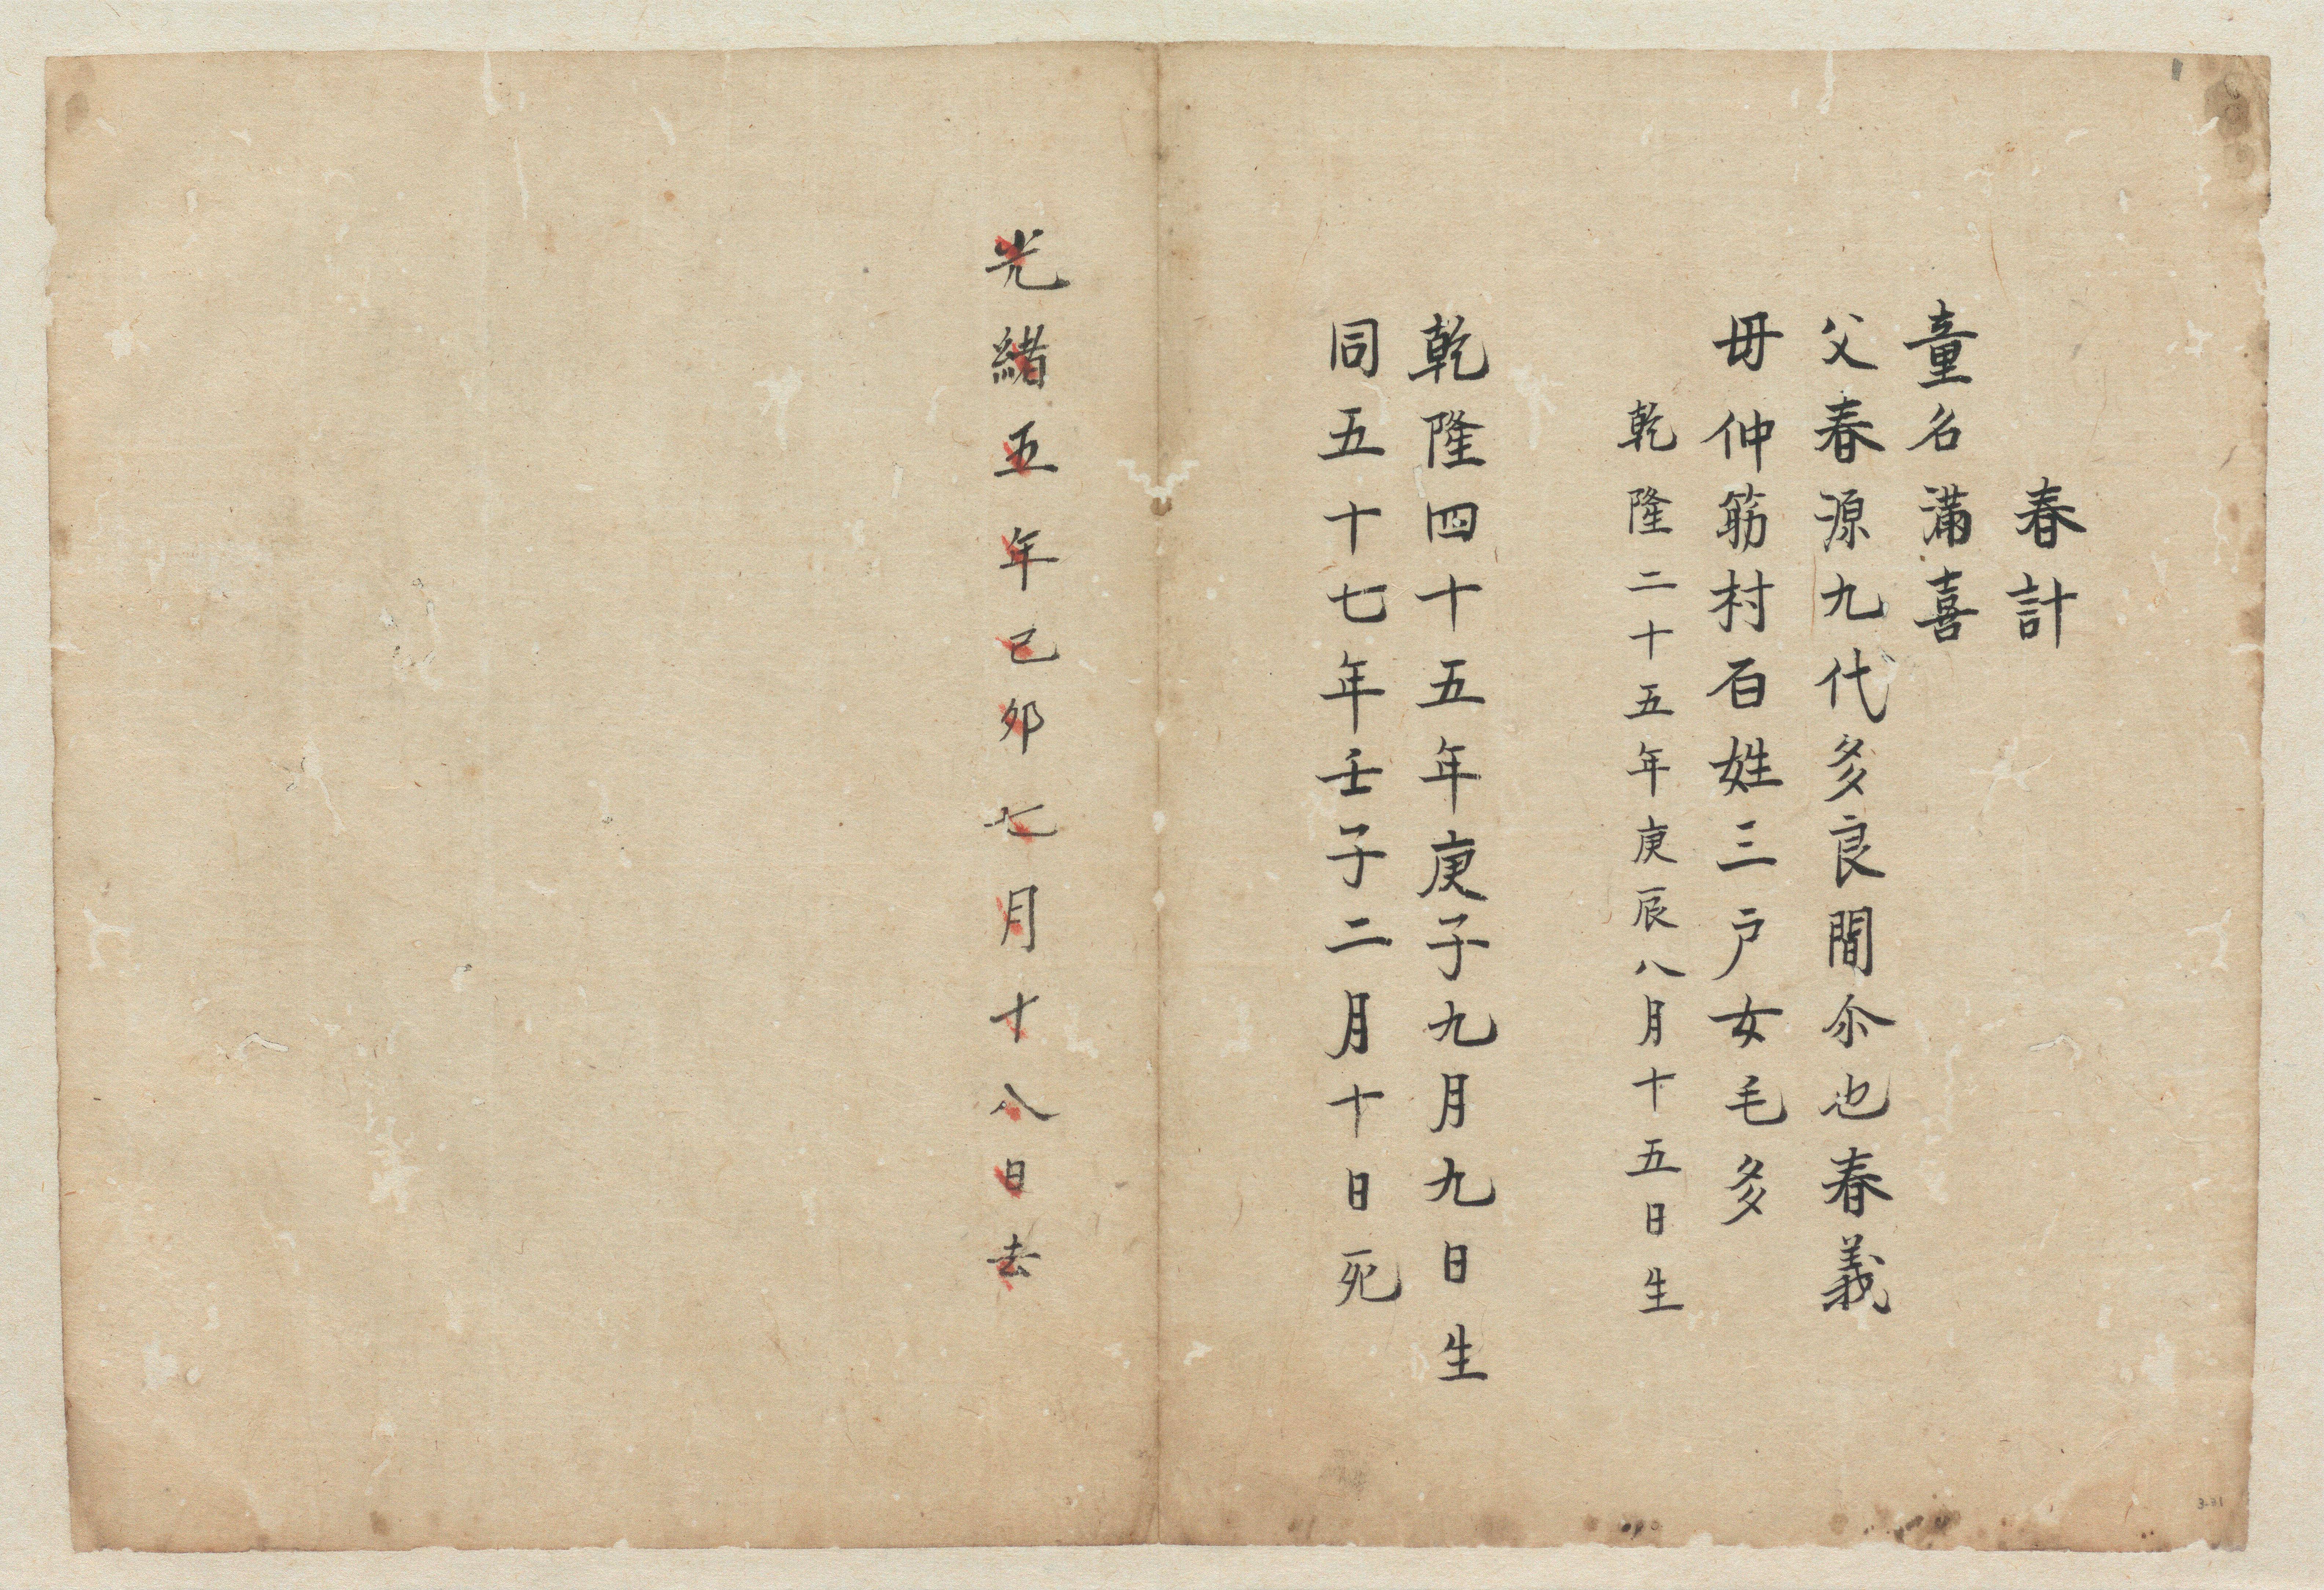 春計
童名満喜
父春源九代多良間尒也春義
毋仲筋村百姓三户女毛多
乾隆二十五年庚辰八月十五日生
乾隆四十五年庚子九月九日生
同五十七年壬子二月十日死
光緒五年己夘七月十八日去